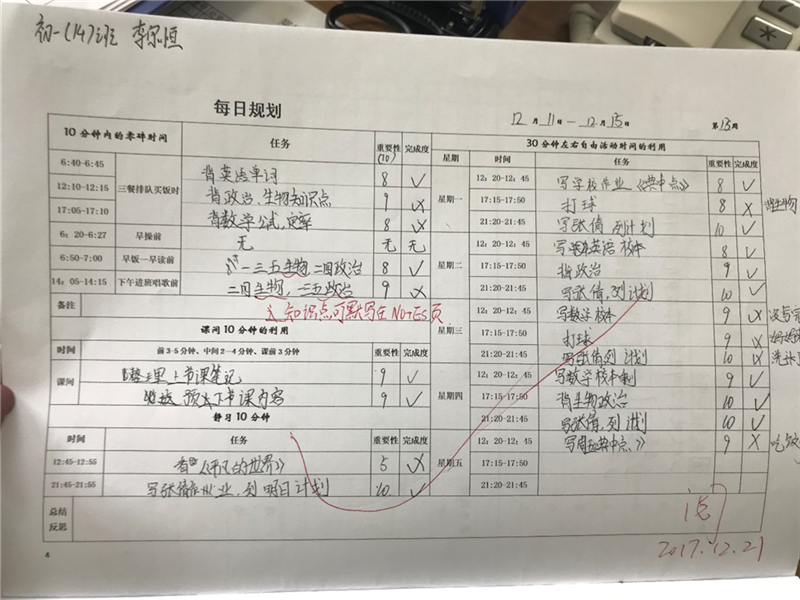 初一(14)班 李
每日规划
12月11日—12月15日 第15周
10分钟内的零碎时间 任务 重要性(10) 完成度
6:40-6:45 三餐排队买饭时 背英语单词 8 ✓
12:10-12:15 背政治、生物知识点 9 ✗
17:05-17:10 背数学公式,定率 8 ✗
6:20-6:27 早操前 无 无 无
6:50-7:00 早饭—早读前 一三五生物,二四政治 8 ✓
14:05-14:15 下午进班唱歌前 二四生物,一三五政治 9 ✗
备注 知识点可默写在NOTES页
课间10分钟的利用
时间 前3-5分钟、中间2-4分钟、课前3分钟 重要性 完成度
课间 整理上节课笔记 9 ✓
预习下节课内容 9 ✓
静习10分钟
时间 任务 重要性 完成度
12:45-12:55 看《平凡的世界》 5 ✗
21:45-21:55 写张倩作业,列明日计划 10 ✓
总结反思
4
30分钟左右自由活动时间的利用
星期 时间 任务 重要性 完成度
星期一 12:20-12:45 写学校作业《典中点》 8 ✓
17:15-17:50 打球 8 ✗ 生物
21:20-21:45 写张倩,列计划 10 ✓
星期二 12:20-12:45 写英语校本 8 ✓
17:15-17:50 背政治 9 ✓
21:20-21:45 写张倩,列计划 10 ✓
星期三 12:20-12:45 写数学校本 9 ✗
17:15-17:50 打球 9 ✗ 妈妈
21:20-21:45 写张倩列计划 10 ✗
星期四 12:20-12:45 写数学校本 9 ✓
17:15-17:50 背生物政治 10 ✓
21:20-21:45 写张倩,列计划 10 ✓
星期五 12:20-12:45 写典中点》 9 ✗ 吃饭
17:15-17:50
21:20-21:45
2017.12.21